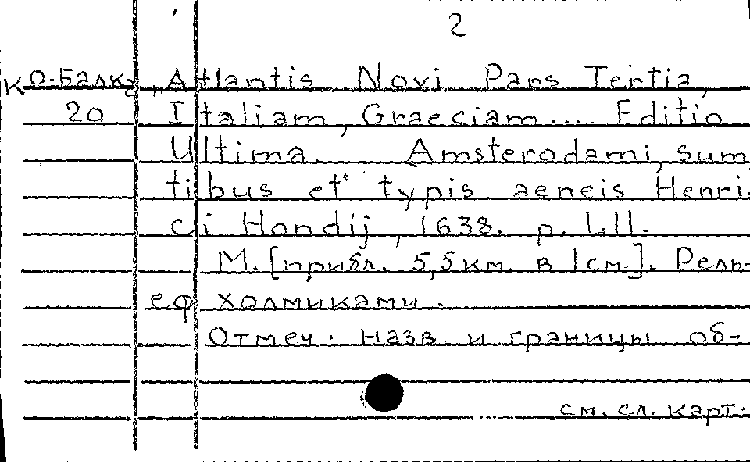 2
Ко-Балк, "Atlantis Novi Pars Tertia,
20 Italiam, Graeciam.... Editio
Ultima. Amsterodami, sum
tibus et typis aeneis Henri
ci Hondij, 1638. p. l.ll.
М. [прибл. 5,5км. в 1см.]. Рель-
еф холмиками.
Отмеч. назв. и границы об-
см. сл. карт.